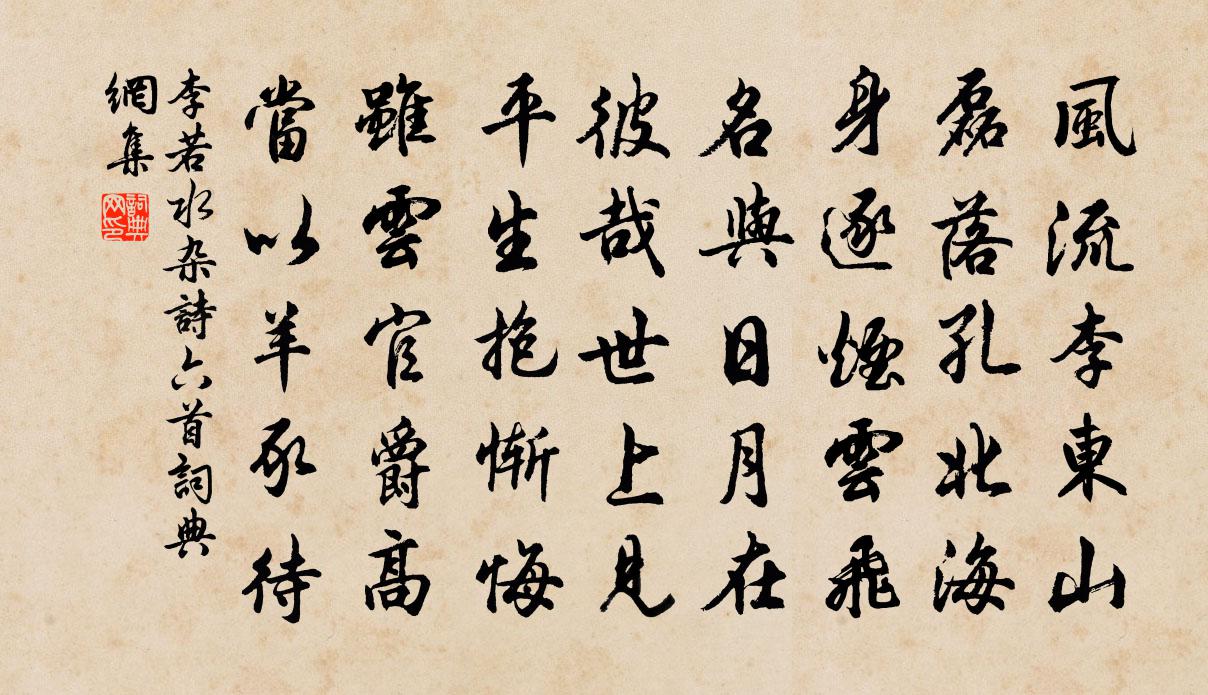 風流李東山
磊落孔北海
身逐煙雲飛
名與日月在
彼哉世上見
平生抱慚悔
雖雲官爵高
當以羊豕待
李若水杂詩六首詞典
網集
詞典
网印